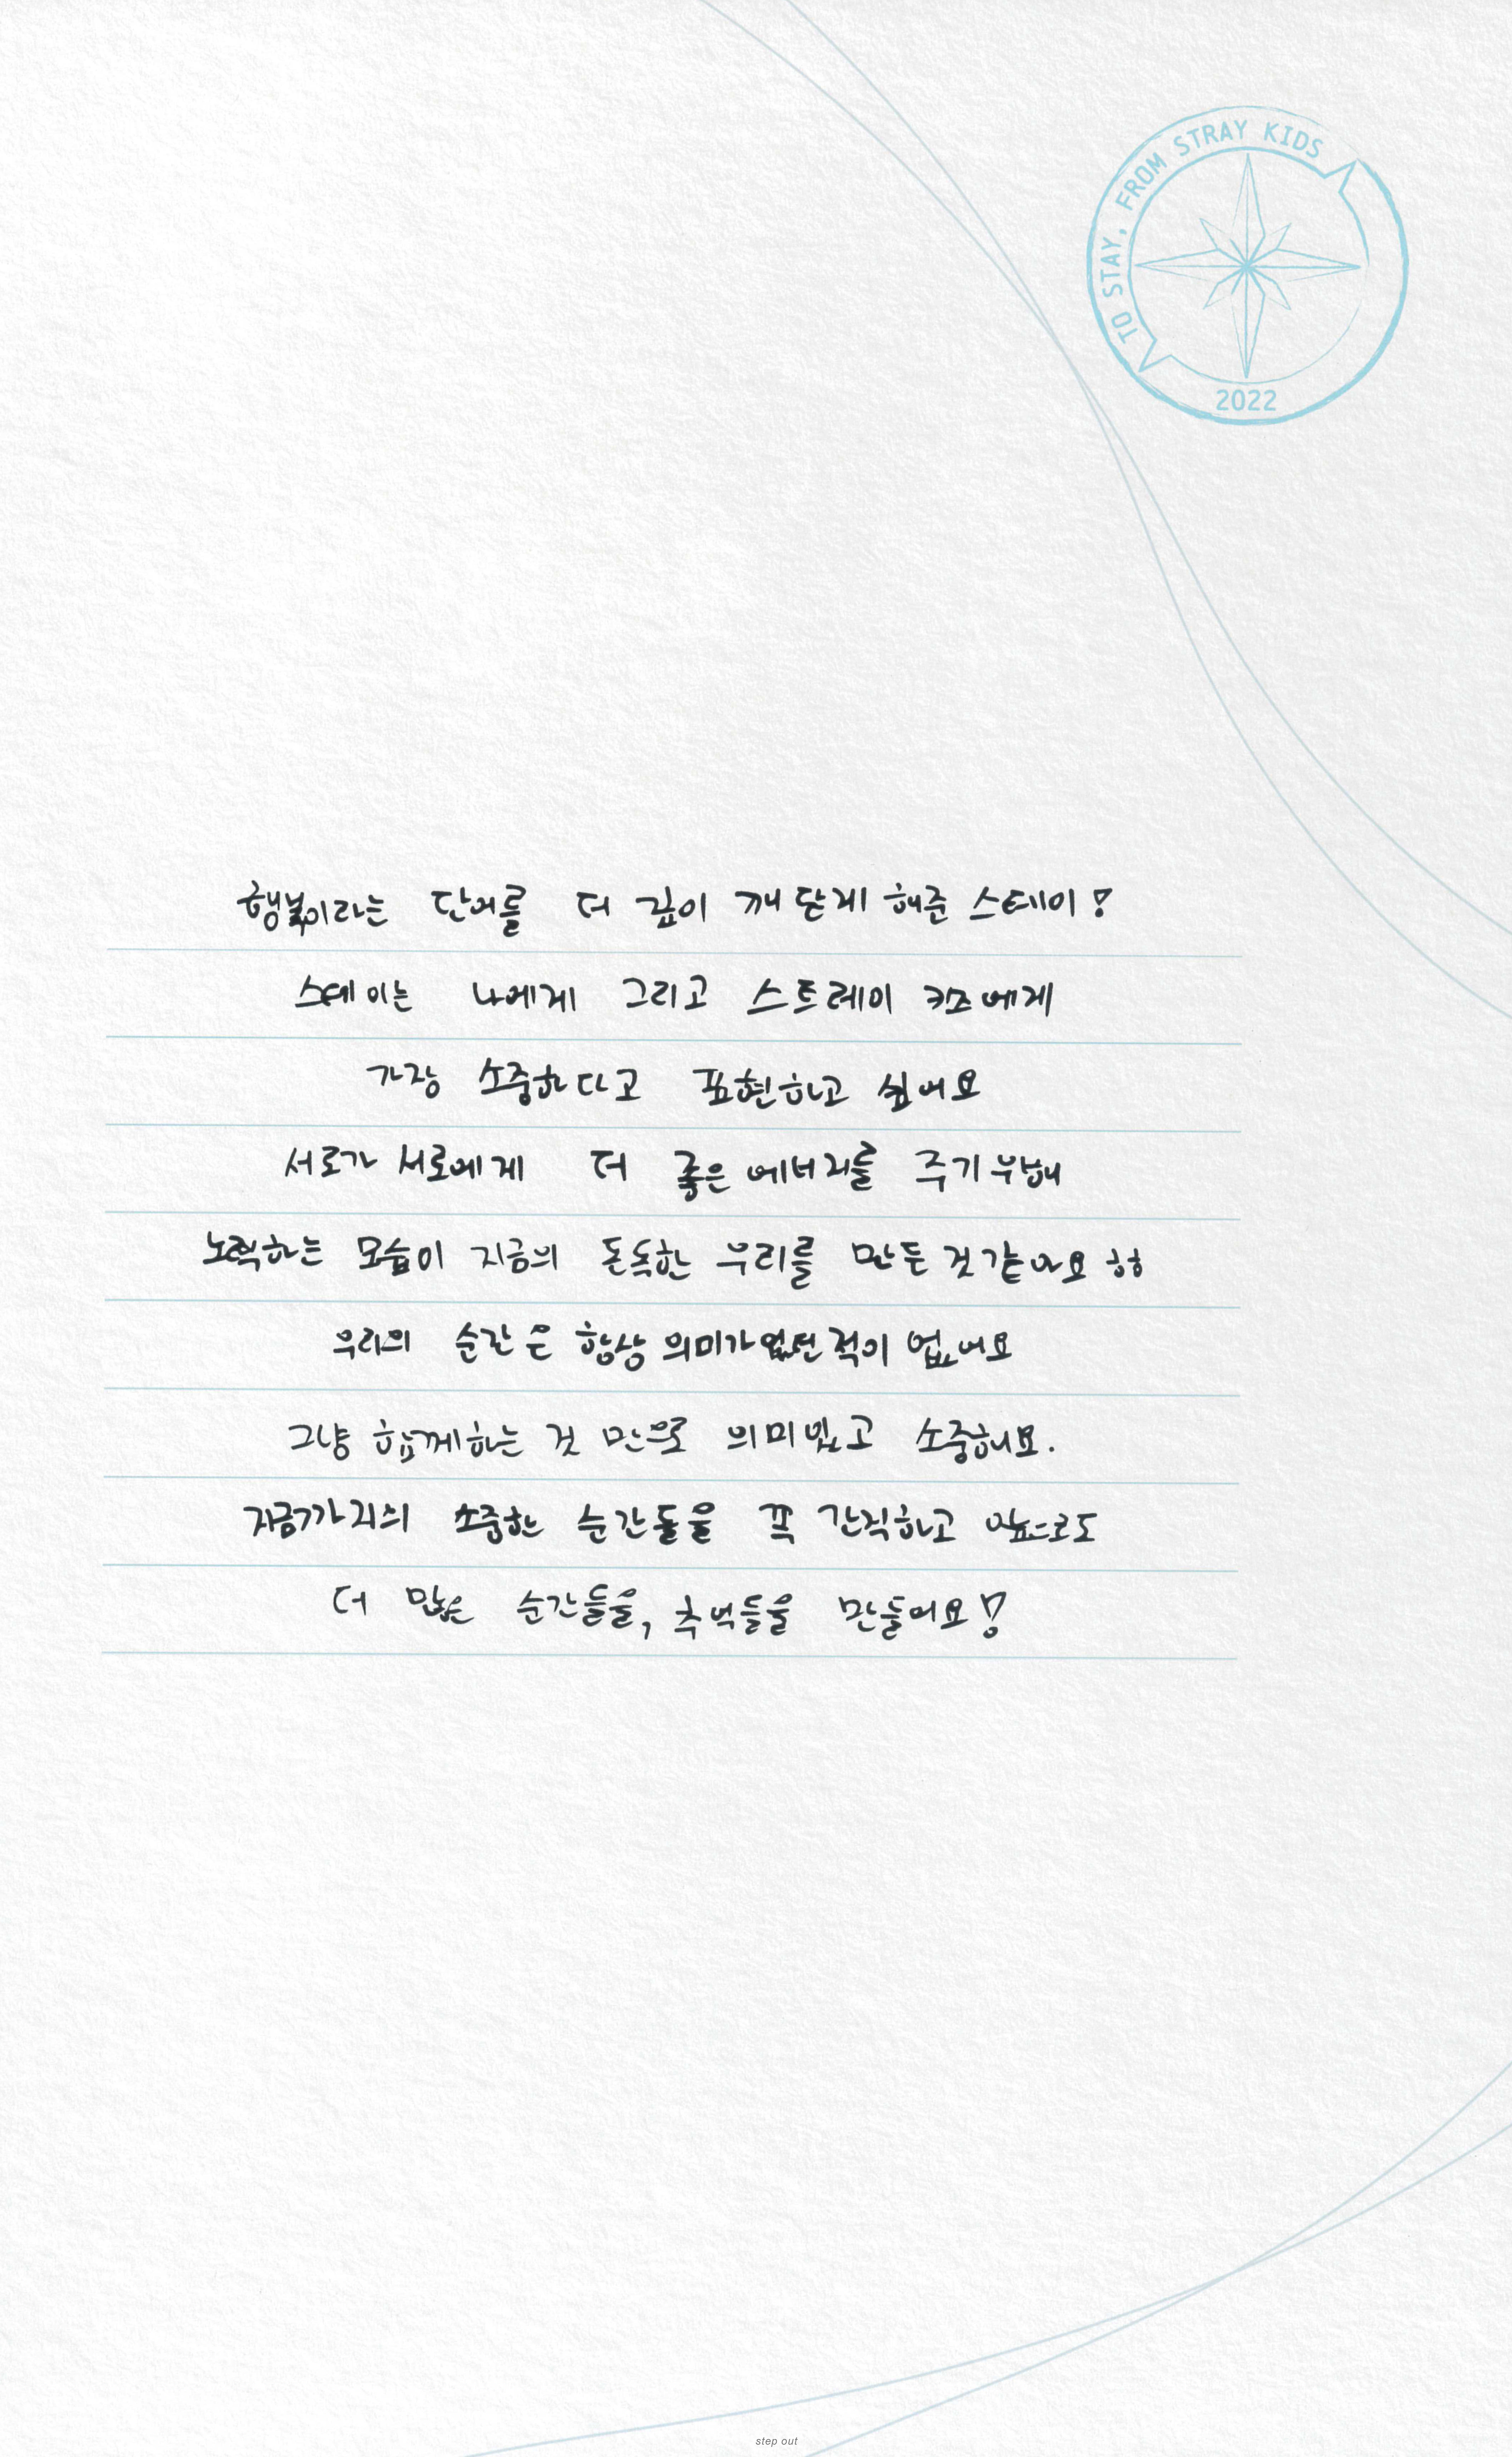 TO STAY, FROM STRAY KIDS
2022
행복이라는 단어를 더 깊이 깨닫게 해준 스테이!
스테이는 나에게 그리고 스트레이 키즈에게
가장 소중하다고 표현하고 싶어요
서로가 서로에게 더 좋은 에너지를 주기 위해
노력하는 모습이 지금의 돈독한 우리를 만든 것 같아요 ㅎㅎ
우리의 순간은 항상 의미가 없던 적이 없어요
그냥 함께하는 것 만으로 의미있고 소중해요.
지금까지의 소중한 순간들을 꼭 간직하고 앞으로도
더 많은 순간들을, 추억들을 만들어요!
step out